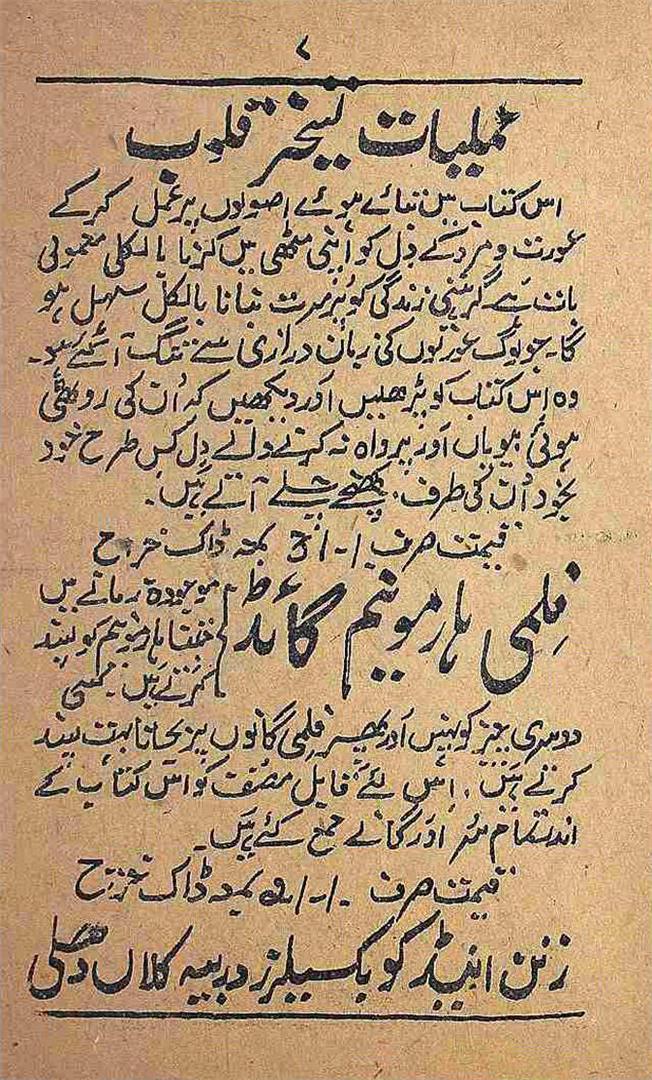 ۸
عملیات تسخیر قلوب
اس کتاب میں بتائے ہوئے اصولوں پر عمل کر کے
عورت و مرد کے دل کو اپنی مٹھی میں کرنا بالکل معمولی
بات ہے۔ گرہستی زندگی کو پُر مسرت بنانا بالکل سہل ہو
گا۔ جو لوگ عورتوں کی زبان درازی سے تنگ آ گئے ہیں۔
وہ اس کتاب کو پڑھیں اور دیکھیں کہ اُن کی روٹھی
ہوئی بیویاں اور پرواہ نہ کرنے والے دل کس طرح خود
بخود اُن کی طرف کھنچے چلے آتے ہیں۔
قیمت صرف -/-/3 بمعہ ڈاک خرچ
فلمی ہارمونیم گائیڈ
موجودہ زمانے میں
جتنا ہارمونیم کو پسند
کرتے ہیں۔ کسی
دوسری چیز کو نہیں اور پھر فلمی گانوں پر بجانا بہت پسند
کرتے ہیں۔ اس لئے قابل مصنف کو اس کتاب کے
اندر تمام سُر اور گانے جمع کئے ہیں۔
قیمت صرف -/-/2 بمعہ ڈاک خرچ
رتن اینڈ کو بکسیلرز دریبہ کلاں دھلی